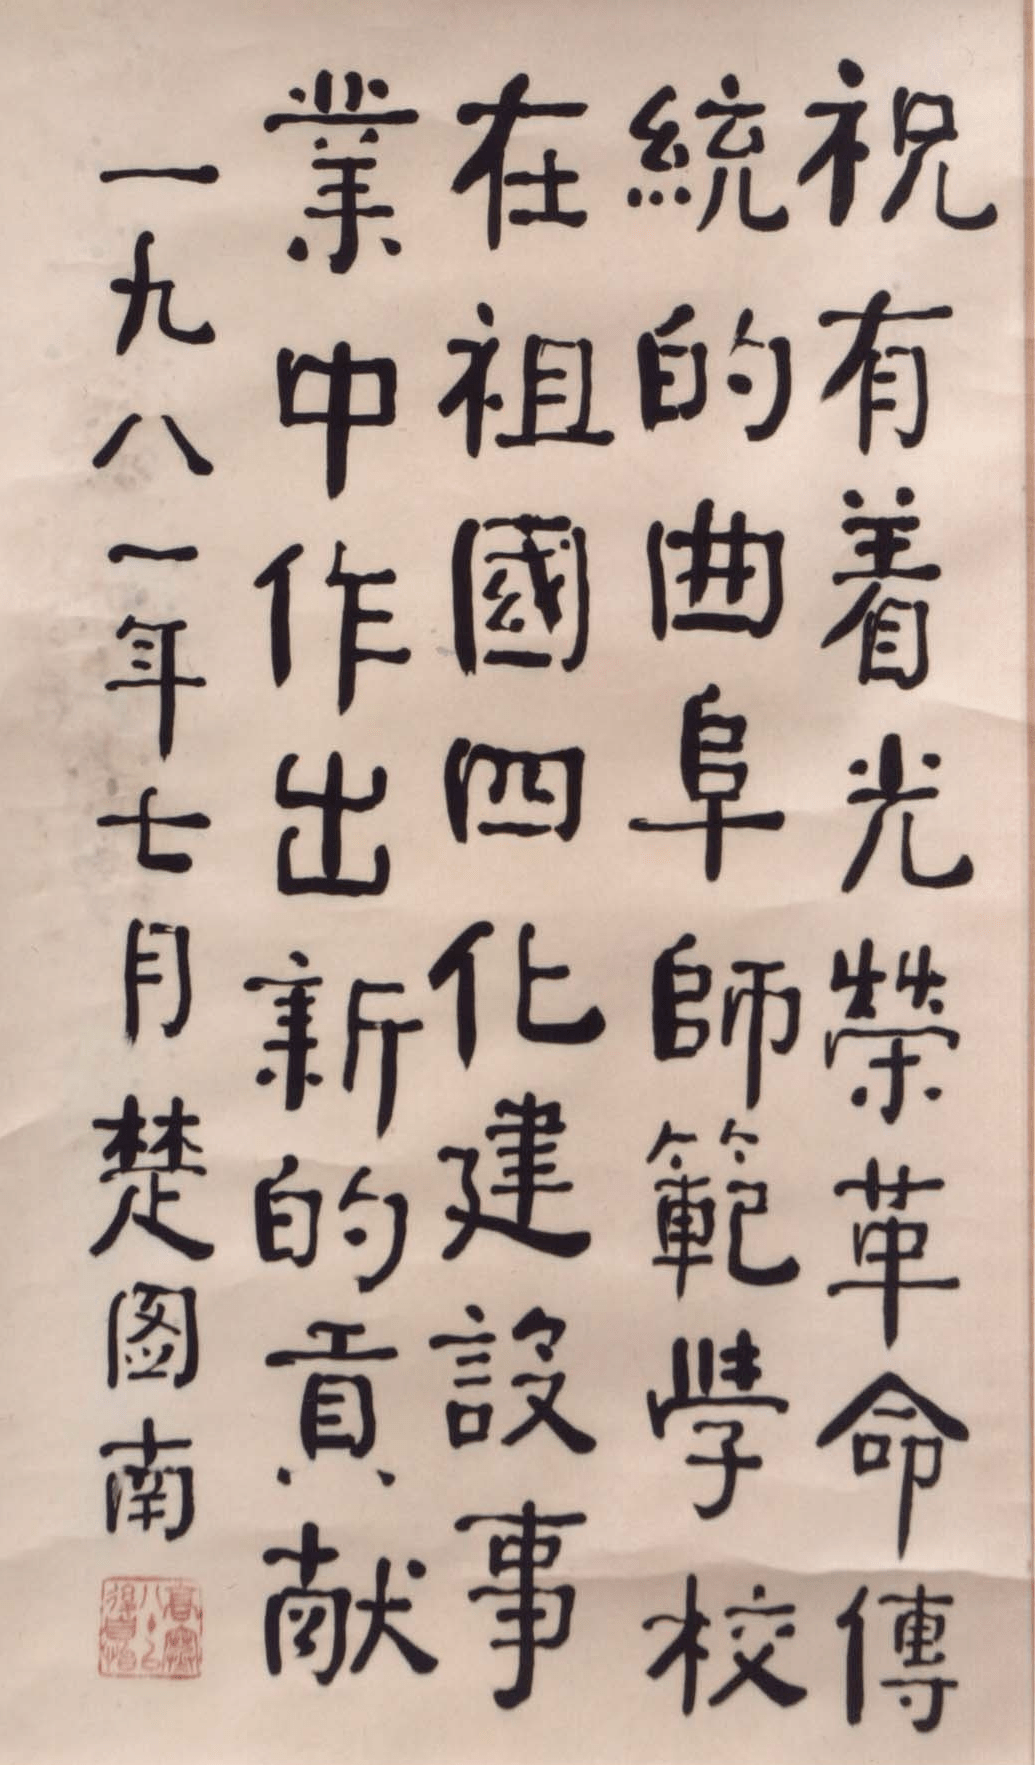 祝有着光荣革命傳
統的曲阜師範学校
在祖國四化建設事
業中作出新的貢献
一九八一年七月楚图南